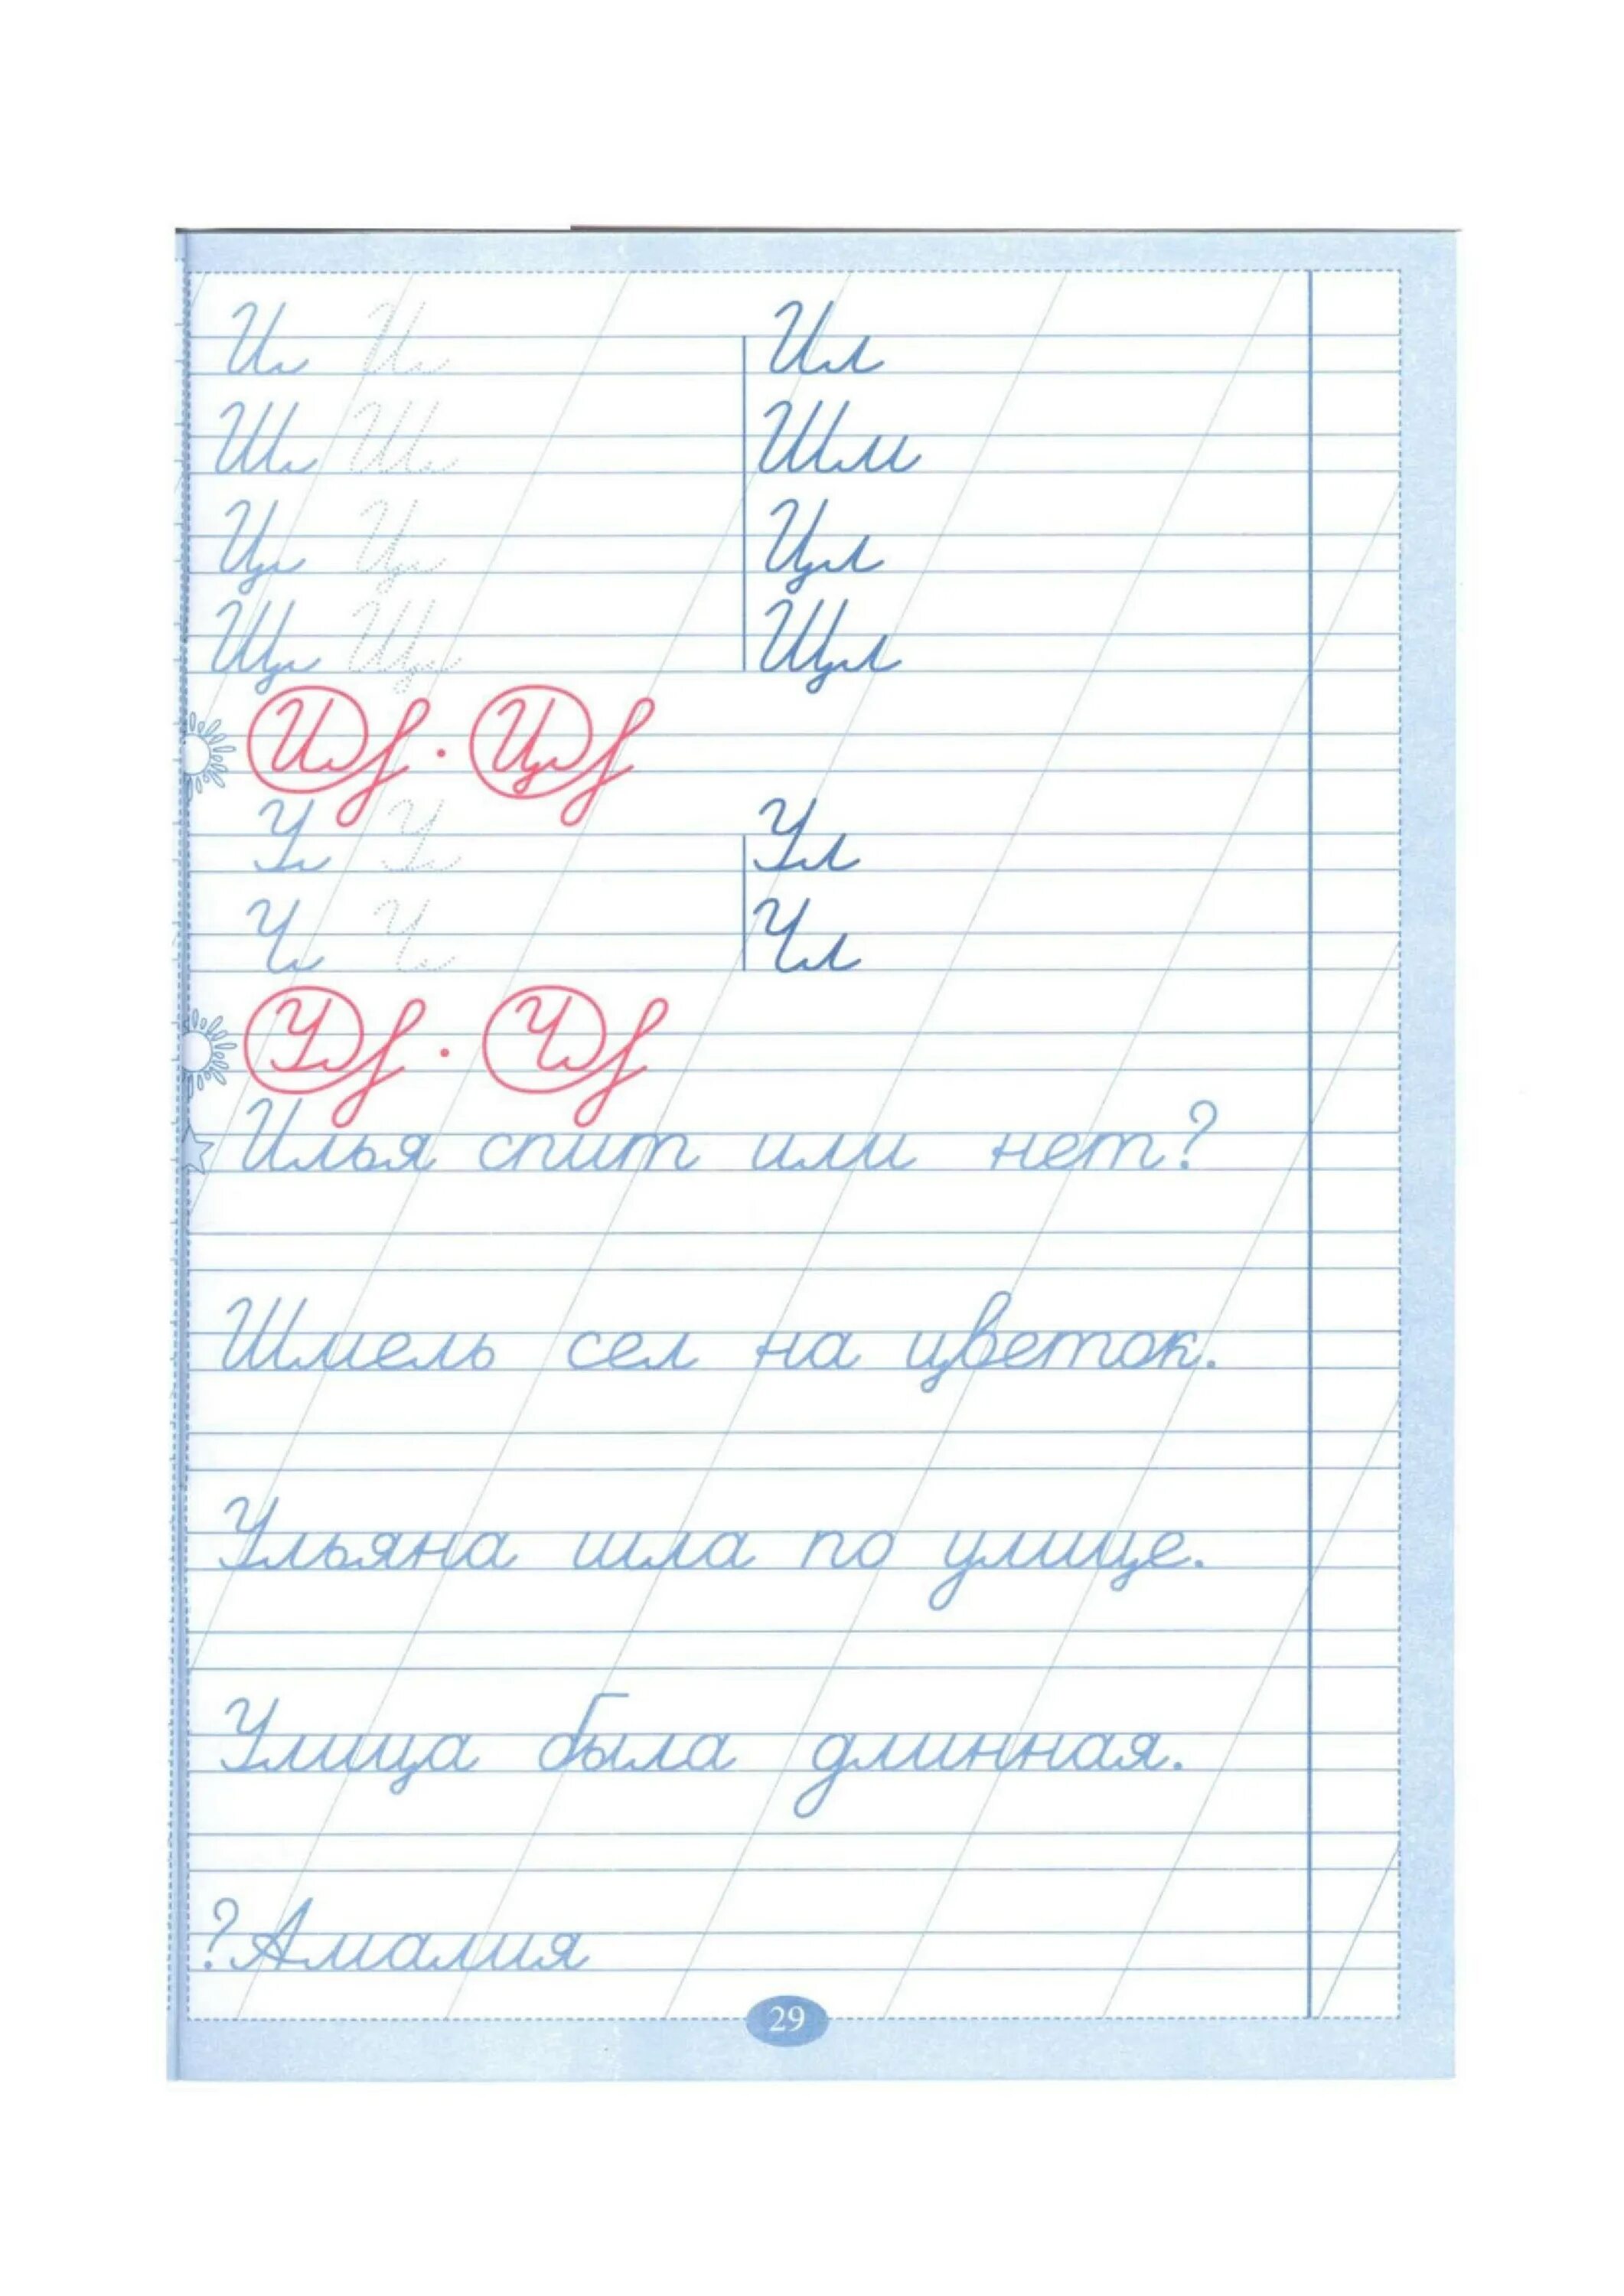 И И Ил
Ш Ш Шм
Ц Ц Цл
Щ Щ Щл
И . Ц
У У Ул
Ч Ч Чл
У . Ч
Илья спит или нет?
Шмель сел на цветок.
Ульяна шла по улице.
Улица была длинная.
?Амалия
29